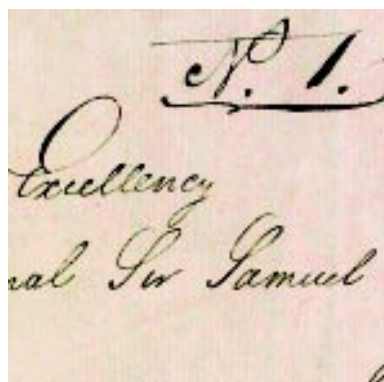 N. 1.
Excellency
nal Sir Samuel